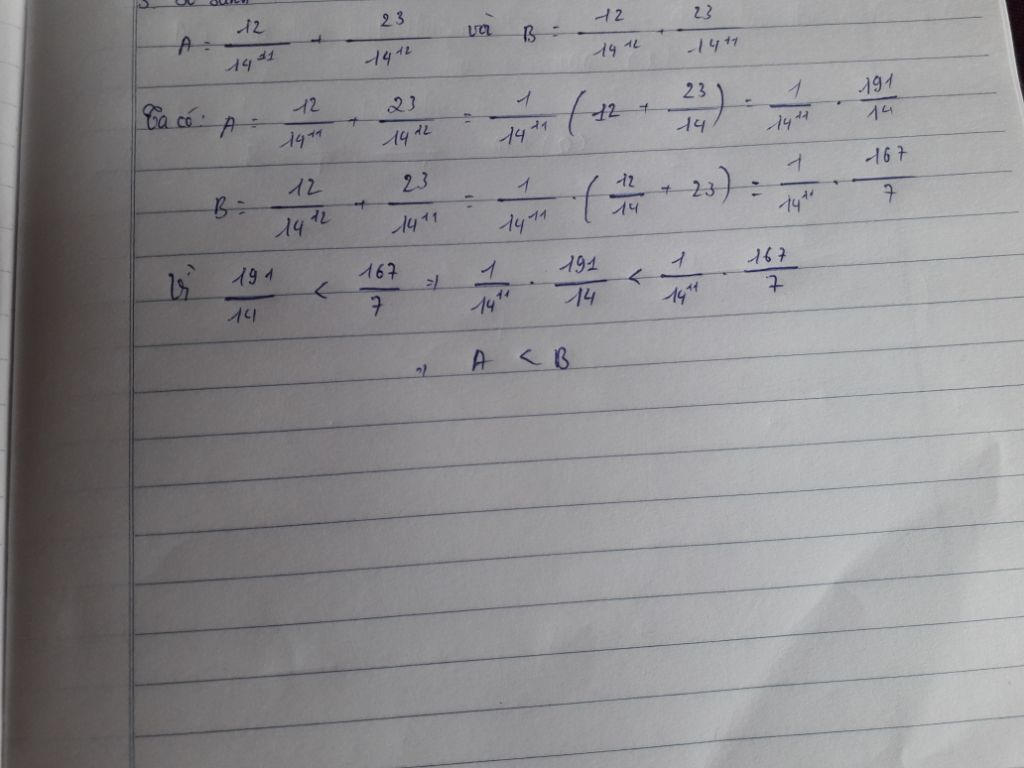 A = 12/14¹¹ + 23/14¹² và B = 12/14¹² + 23/14¹¹
Ta có: A = 12/14¹¹ + 23/14¹² = 1/14¹¹ (12 + 23/14) = 1/14¹¹ . 191/14
B = 12/14¹² + 23/14¹¹ = 1/14¹¹ . (12/14 + 23) = 1/14¹¹ . 167/7
Vì 191/14 < 167/7 => 1/14¹¹ . 191/14 < 1/14¹¹ . 167/7
=> A < B